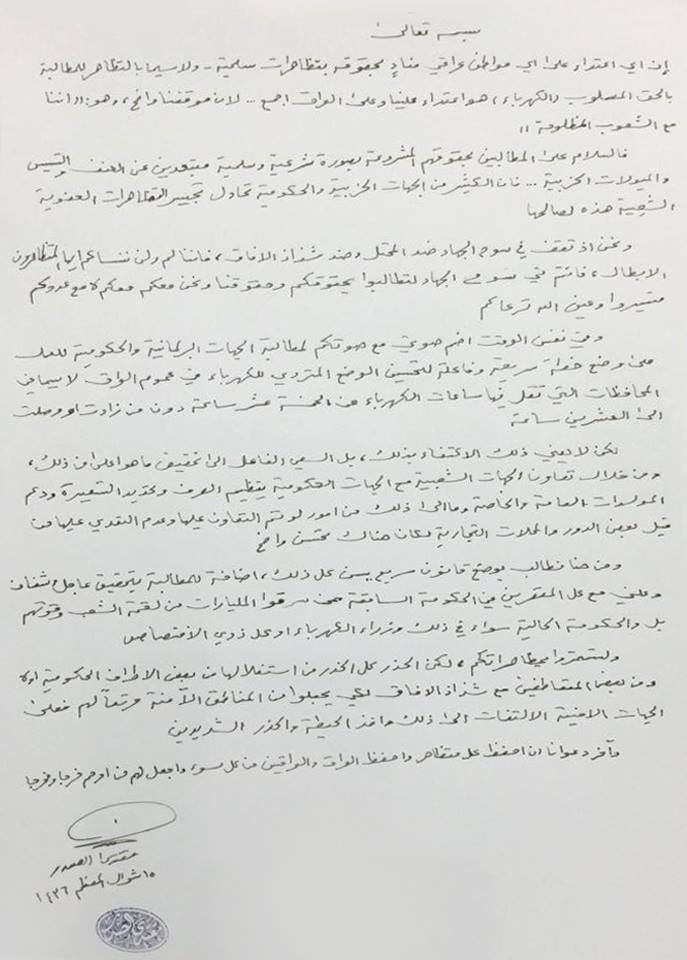 بسمه تعالى
إن اي اعتداء على اي مواطن عراقي منادٍ بحقوقه بتظاهرات سلمية - ولا سيما بالتظاهر للمطالبة
بالحق المسلوب (الكهرباء)، هو اعتداء علينا وعلى العراق اجمع ... لان موقفنا واضح، وهو: (( اننا
مع الشعوب المظلومة ))
فالسلام على المطالبين بحقوقهم المشروعة بصورة شرعية وسلمية مبتعدين عن العنف والتسيس
والميولات الحزبية ... فان الكثير من الجهات الحزبية والحكومية تحاول تجيير التظاهرات العفوية
الشعبية هذه لصالحها
ونحن اذ نقف في سوح الجهاد ضد المحتل وضد شذاذ الافاق، فاننا لم ولن ننساكم ايها المتظاهرون
الابطال، فانتم في سوح الجهاد لتطالبوا بحقوقكم وحقوقنا ونحن معكم معكم لا مع عدوكم
فسيروا وعين الله ترعاكم
وفي نفس الوقت اضم صوتي مع صوتكم لمطالبة الجهات البرلمانية والحكومية للعمل
على وضع خطة سريعة وفاعلة لتحسين الوضع المتردي للكهرباء في عموم العراق لا سيما في
المحافظات التي تقل فيها ساعات الكهرباء عن الخمسة عشر ساعة دون من زادت او وصلت
الى العشرين ساعة
لكن لا يعني ذلك الاكتفاء بذلك، بل السعي الفاعل الى تحقيق ما هو اعلى من ذلك،
ومن خلال تعاون الجهات الشعبية مع الجهات الحكومية بتنظيم الصرف وتحديد التسعيرة ودعم
المولدات العامة والخاصة وما الى ذلك من امور لو تم التعاون عليها وعدم التعدي عليها من
قبل بعض الدور والمحلات التجارية لكان هناك تحسن واضح
ومن هنا نطالب بوضع قانون سريع يسن على ذلك، اضافة للمطالبة بتحقيق عاجل وشفاف
وعلني مع كل المقصرين في الحكومة السابقة ممن سرقوا المليارات من لقمة الشعب وقوتهم
بل والحكومة الحالية سواء في ذلك وزراء الكهرباء او كل ذوي الاختصاص
ولتستمروا بمظاهراتكم، لكن الحذر كل الحذر من استغلالها من بعض الاطراف الحكومية اولا
ومن بعض المتعاطفين مع شذاذ الافاق لكي يجعلوا من المناطق الآمنة مرتعاً لهم فعلى
الجهات الامنية الالتفات الى ذلك واخذ الحيطة والحذر الشديدين
وآخر دعوانا ان احفظ كل متظاهر واحفظ العراق والعراقيين من كل سوء واجعل لهم من امرهم فرجا ومخرجا
مقتدى الصدر
١٥ شوال المعظم ١٤٣٦